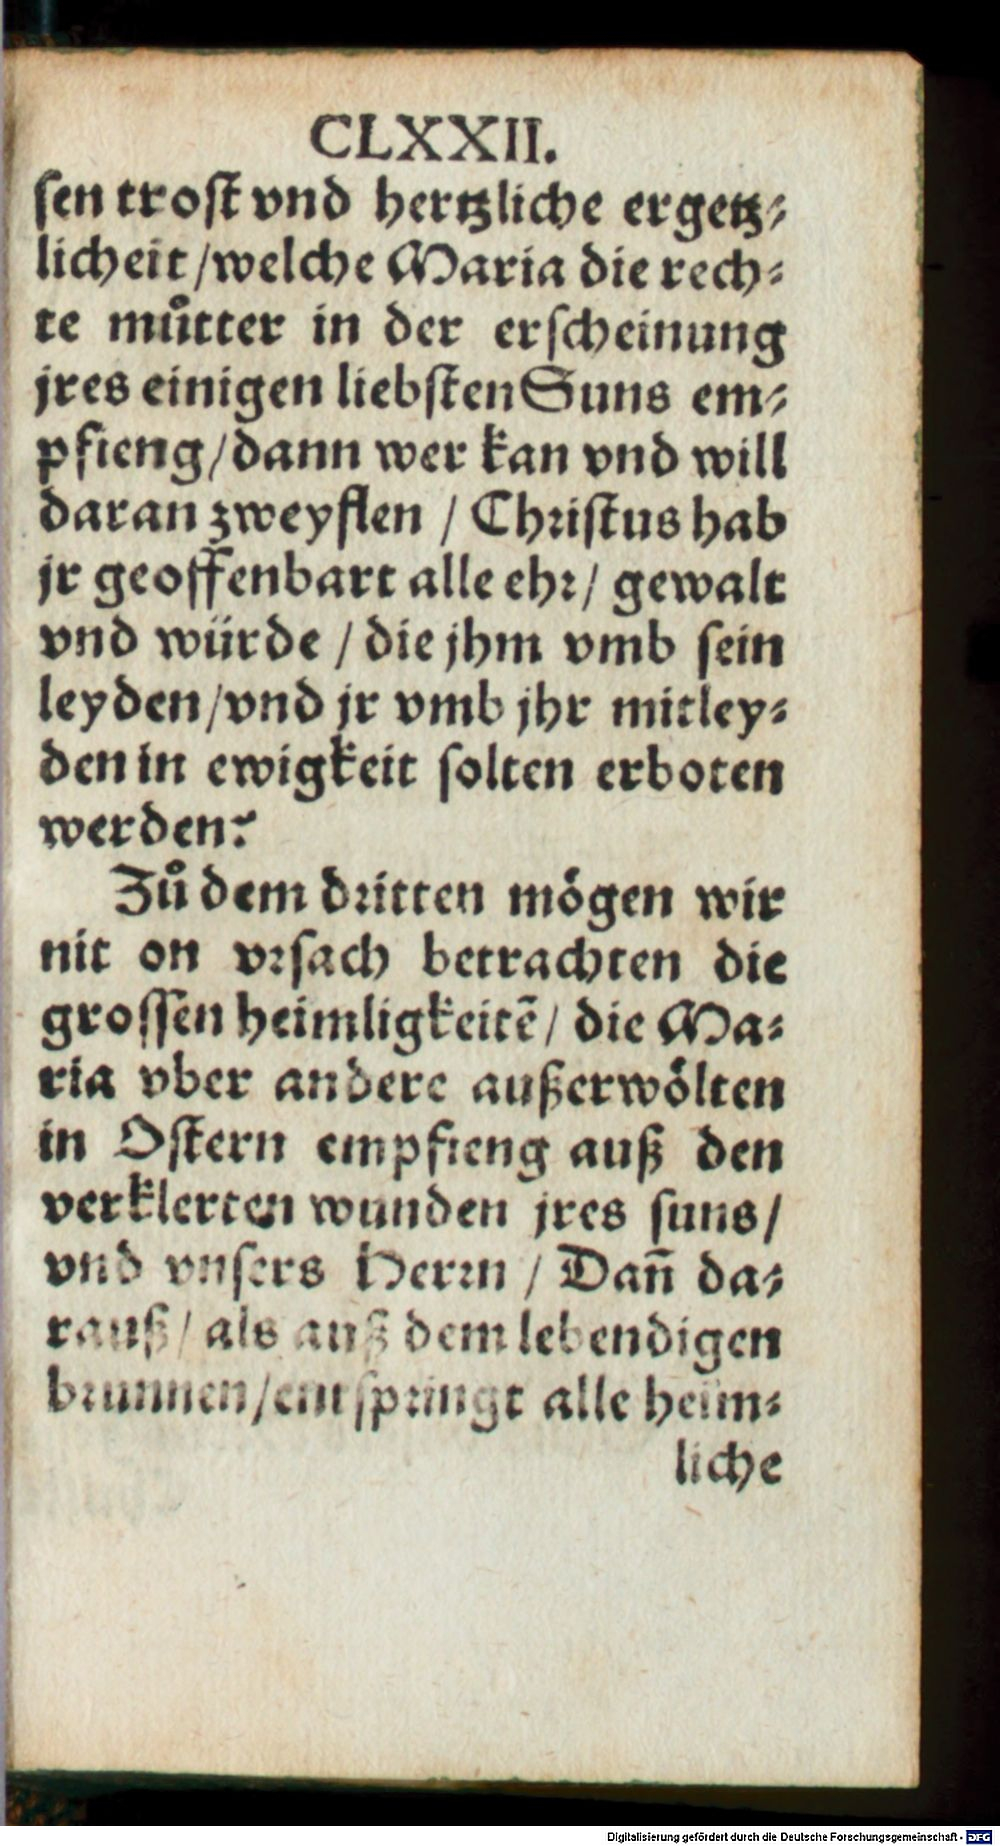 CLXXII.
sen trost vnd hertzliche ergetz⸗
licheit / welche Maria die rech⸗
te můtter in der erscheinung
jres einigen liebsten Suns em⸗
pfieng / dann wer kan vnd will
daran zweyflen / Christus hab
jr geoffenbart alle ehr / gewalt
vnd würde / die jhm vmb sein
leyden / vnd jr vmb jhr mitley⸗
den in ewigkeit solten erboten
werden?
Zů dem dritten mögen wir
nit on vrsach betrachten die
grossen heimligkeitē / die Ma⸗
ria vber andere außerwölten
in Ostern empfieng auß den
verklerten wunden jres suns /
vnd vnsers Herrn / Dañ da⸗
rauß / als auß dem lebendigen
brunnen / entspringt alle heim⸗
liche
Digitalisierung gefördert durch die Deutsche Forschungsgemeinschaft - DFG